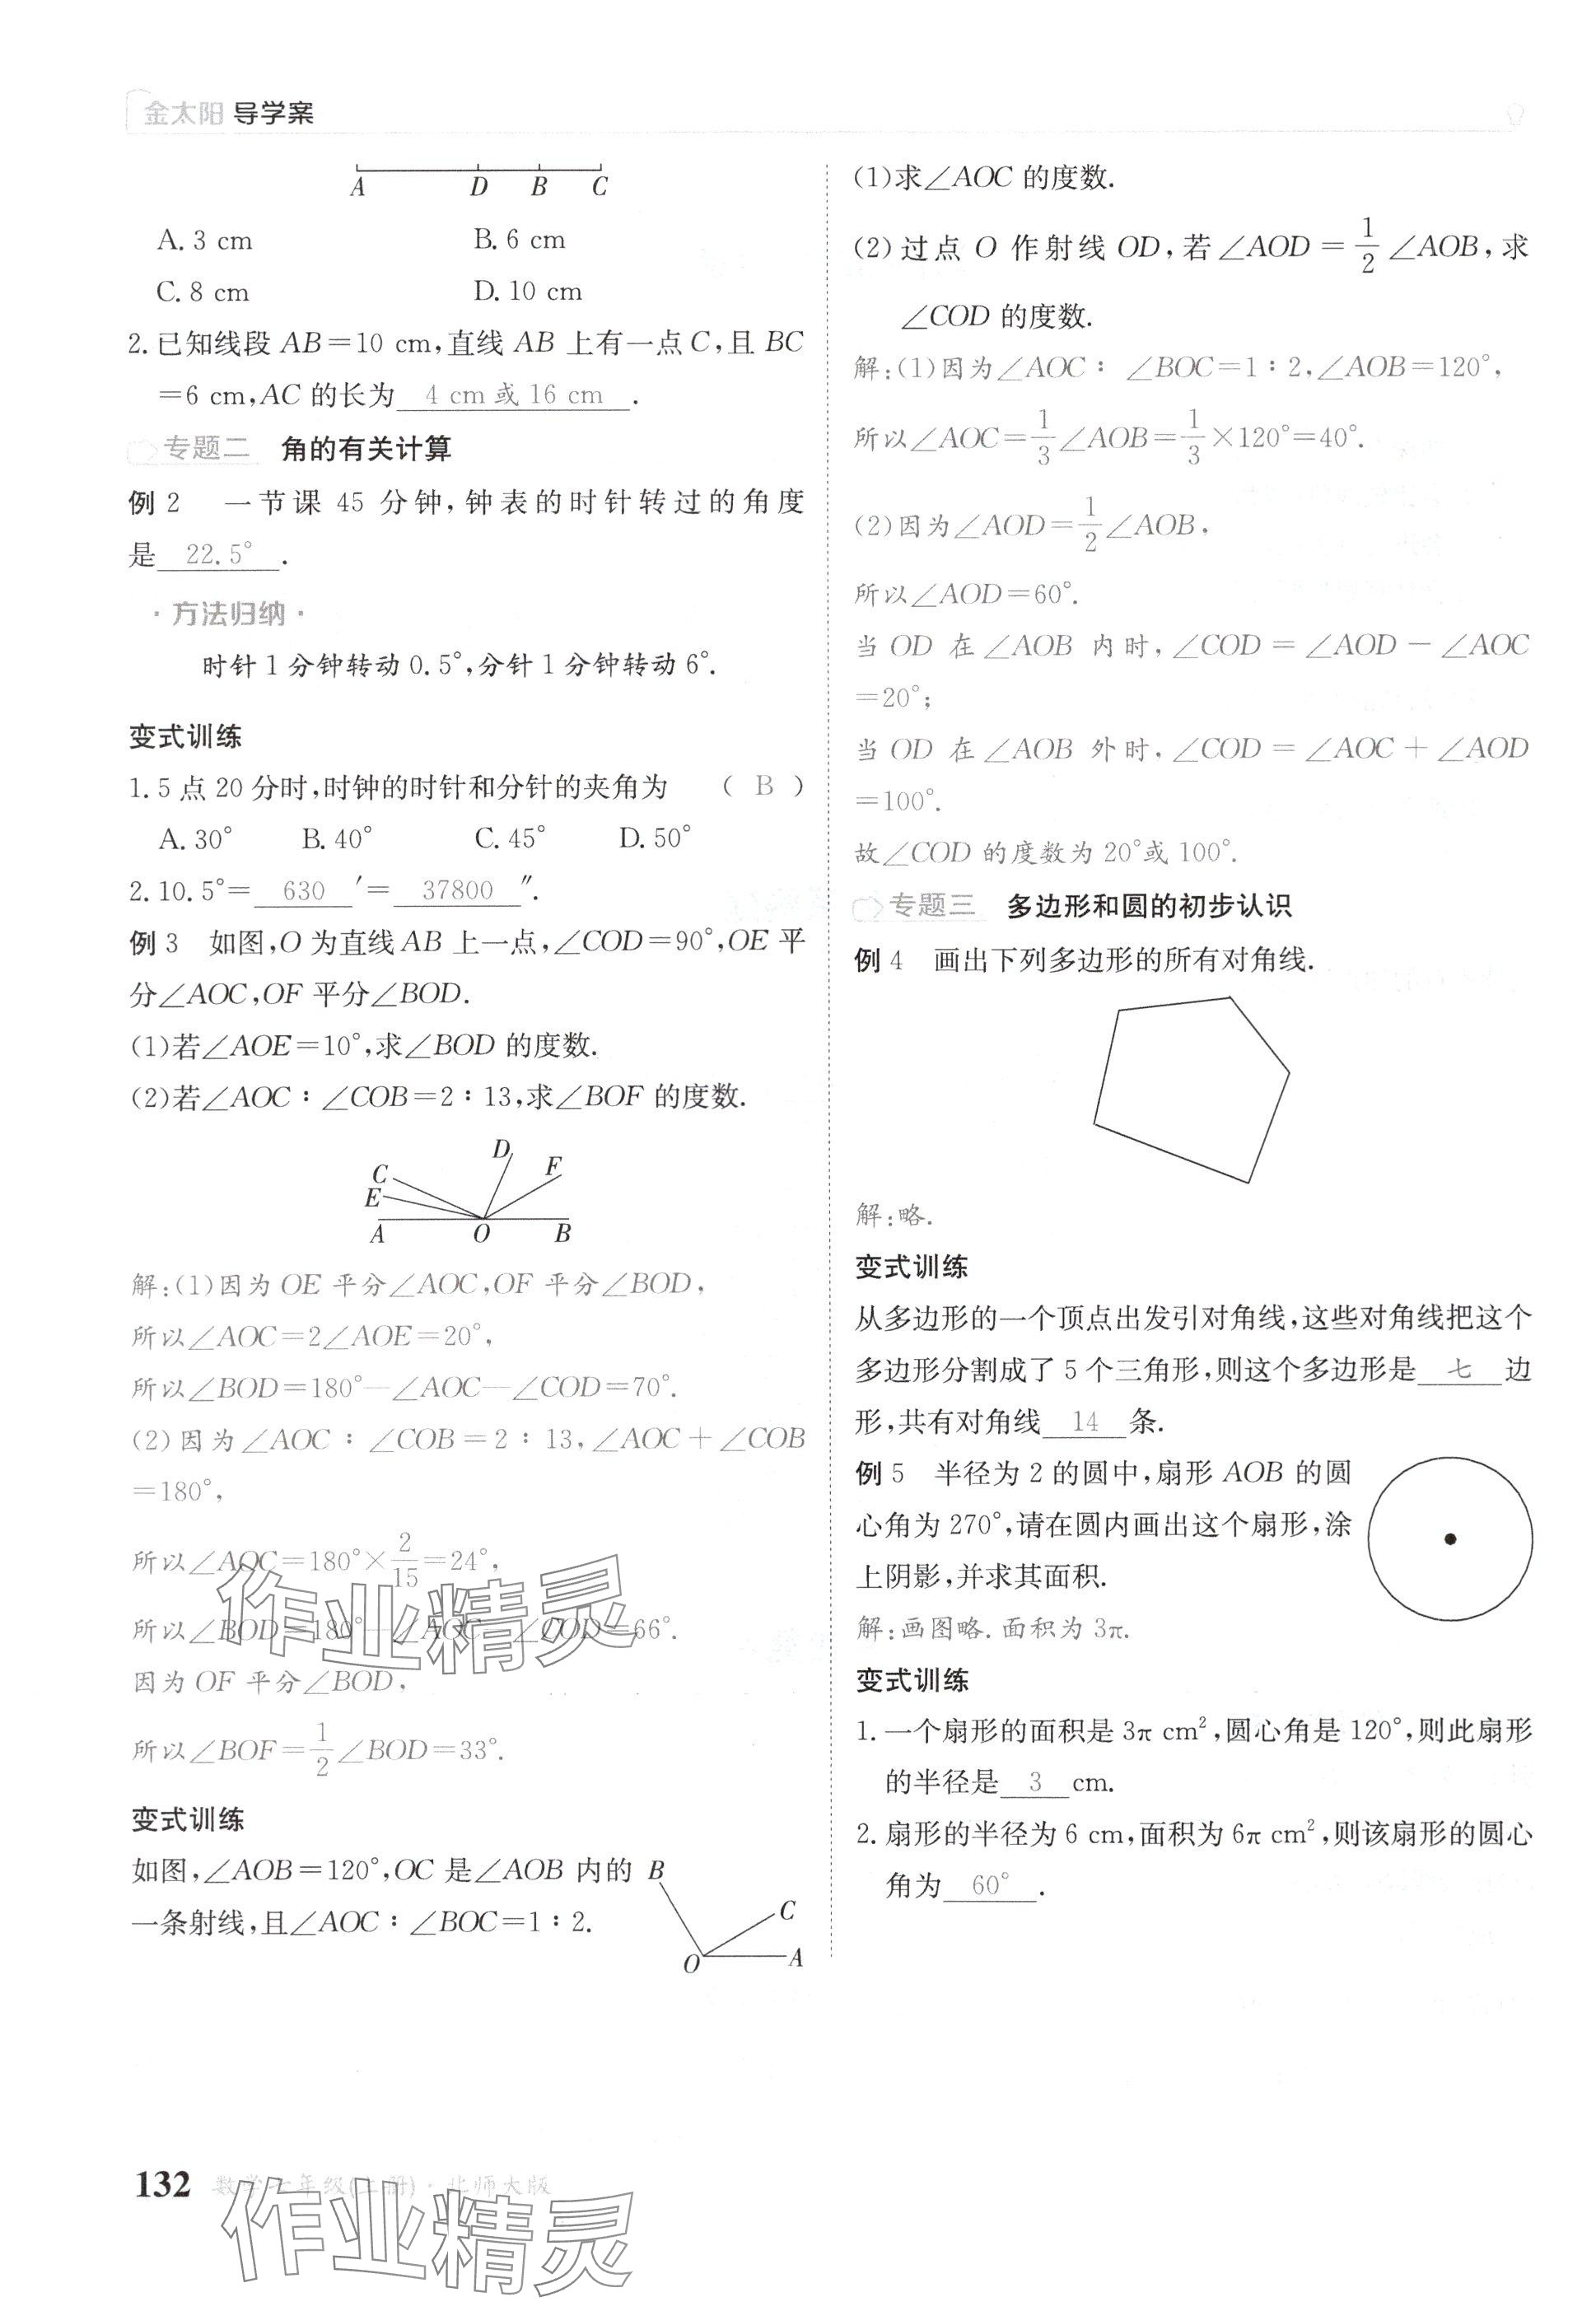 金太阳 导学案
A D B C
A. 3 cm B. 6 cm
C. 8 cm D. 10 cm
2. 已知线段 AB=10 cm,直线 AB 上有一点 C,且 BC
=6 cm,AC 的长为 4 cm 或 16 cm .
专题二 角的有关计算
例 2 一节课 45 分钟,钟表的时针转过的角度
是 22.5° .
· 方法归纳 ·
时针 1 分钟转动 0.5°,分针 1 分钟转动 6°.
变式训练
1. 5 点 20 分时,时钟的时针和分针的夹角为 ( B )
A. 30° B. 40° C. 45° D. 50°
2. 10.5°= 630 ′= 37800 ″.
例 3 如图,O 为直线 AB 上一点,∠COD=90°,OE 平
分∠AOC,OF 平分∠BOD.
(1)若∠AOE=10°,求∠BOD 的度数.
(2)若∠AOC∶∠COB=2∶13,求∠BOF 的度数.
D
F
C
E
A O B
解:(1)因为 OE 平分∠AOC,OF 平分∠BOD,
所以∠AOC=2∠AOE=20°,
所以∠BOD=180°-∠AOC-∠COD=70°.
(2)因为∠AOC∶∠COB=2∶13,∠AOC+∠COB
=180°,
所以∠AOC=180°×2/15=24°,
所以∠BOD=180°-∠AOC-∠COD=66°.
因为 OF 平分∠BOD,
所以∠BOF=1/2∠BOD=33°.
变式训练
如图,∠AOB=120°,OC 是∠AOB 内的
一条射线,且∠AOC∶∠BOC=1∶2.
B
C
O A
(1)求∠AOC 的度数.
(2)过点 O 作射线 OD,若∠AOD=1/2∠AOB,求
∠COD 的度数.
解:(1)因为∠AOC∶∠BOC=1∶2,∠AOB=120°,
所以∠AOC=1/3∠AOB=1/3×120°=40°.
(2)因为∠AOD=1/2∠AOB,
所以∠AOD=60°.
当 OD 在∠AOB 内时,∠COD=∠AOD-∠AOC
=20°;
当 OD 在∠AOB 外时,∠COD=∠AOC+∠AOD
=100°.
故∠COD 的度数为 20°或 100°.
专题三 多边形和圆的初步认识
例 4 画出下列多边形的所有对角线.
解:略.
变式训练
从多边形的一个顶点出发引对角线,这些对角线把这个
多边形分割成了 5 个三角形,则这个多边形是 七 边
形,共有对角线 14 条.
例 5 半径为 2 的圆中,扇形 AOB 的圆
心角为 270°,请在圆内画出这个扇形,涂
上阴影,并求其面积.
解:画图略.面积为 3π.
变式训练
1. 一个扇形的面积是 3π cm²,圆心角是 120°,则此扇形
的半径是 3 cm.
2. 扇形的半径为 6 cm,面积为 6π cm²,则该扇形的圆心
角为 60° .
作业精灵
132 数学七年级(上册)·北师大版
作业精灵